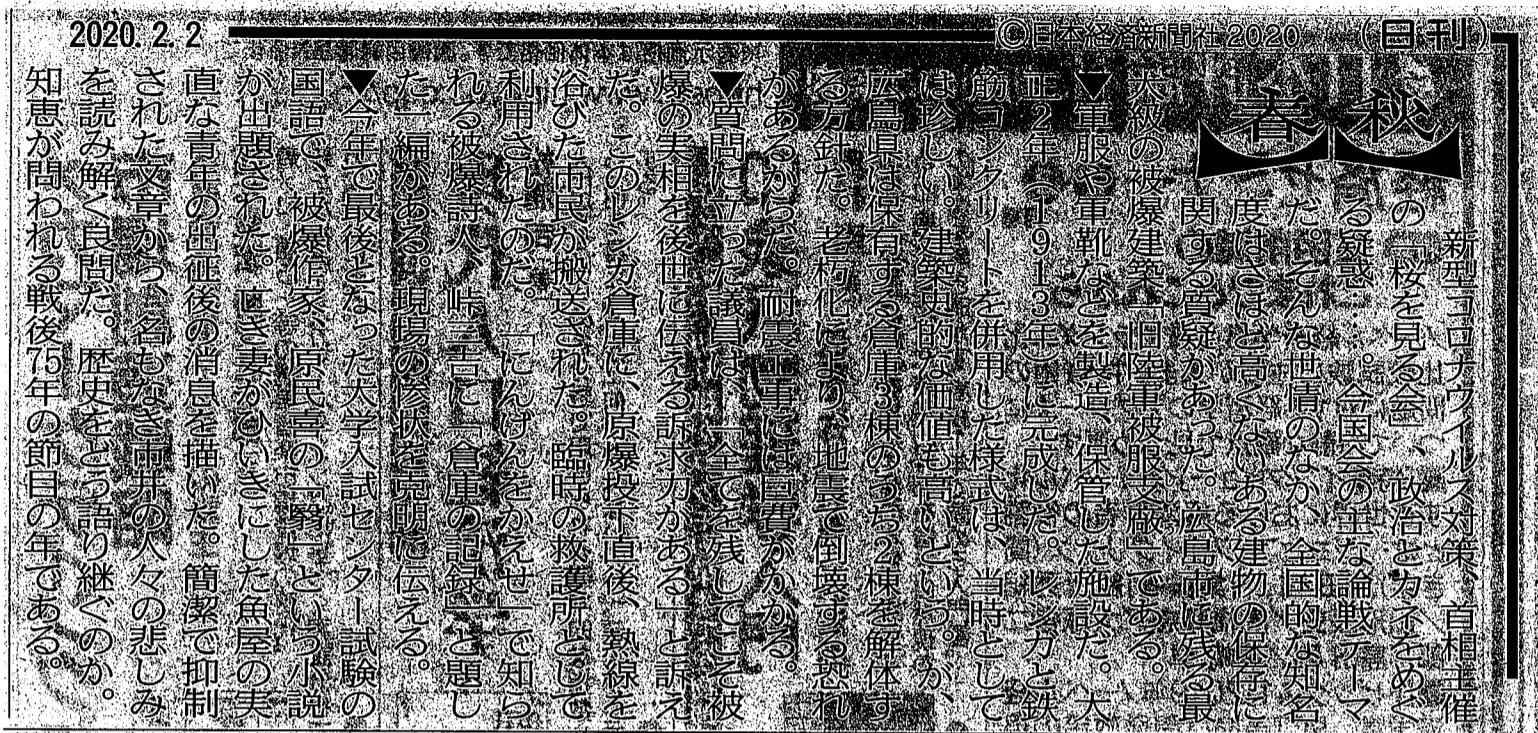 2020.2.2
©日本経済新聞社 2020
（日刊）
春秋
新型コロナウイルス対策、首相主催
の「桜を見る会」、政治とカネをめぐ
る疑惑…。今国会の主な論戦テーマ
だ。そんな世情のなか、全国的な知名
度はさほど高くないある建物の保存に
関する質疑があった。広島市に残る最
大級の被爆建築「旧陸軍被服支廠」である。
▼軍服や軍靴などを製造、保管した施設だ。大
正2年（1913年）に完成した。レンガと鉄
筋コンクリートを併用した様式は、当時として
は珍しい。建築史的な価値も高いという。が、
広島県は保有する倉庫3棟のうち2棟を解体す
る方針だ。老朽化により、地震で倒壊する恐れ
があるからだ。耐震工事には巨費がかかる。
▼質問に立った議員は、「全てを残してこそ被
爆の実相を後世に伝える訴求力がある」と訴え
た。このレンガ倉庫に、原爆投下直後、熱線を
浴びた市民が搬送された。臨時の救護所として
利用されたのだ。「にんげんをかえせ」で知ら
れる被爆詩人、峠三吉に「倉庫の記録」と題し
た一編がある。現場の惨状を克明に伝える。
▼今年で最後となった大学入試センター試験の
国語で、被爆作家、原民喜の「翳」という小説
が出題された。亡き妻がひいきにした魚屋の実
直な青年の出征後の消息を描いた。簡潔で抑制
された文章から、名もなき市井の人々の悲しみ
を読み解く良問だ。歴史をどう語り継ぐのか。
知恵が問われる戦後75年の節目の年である。